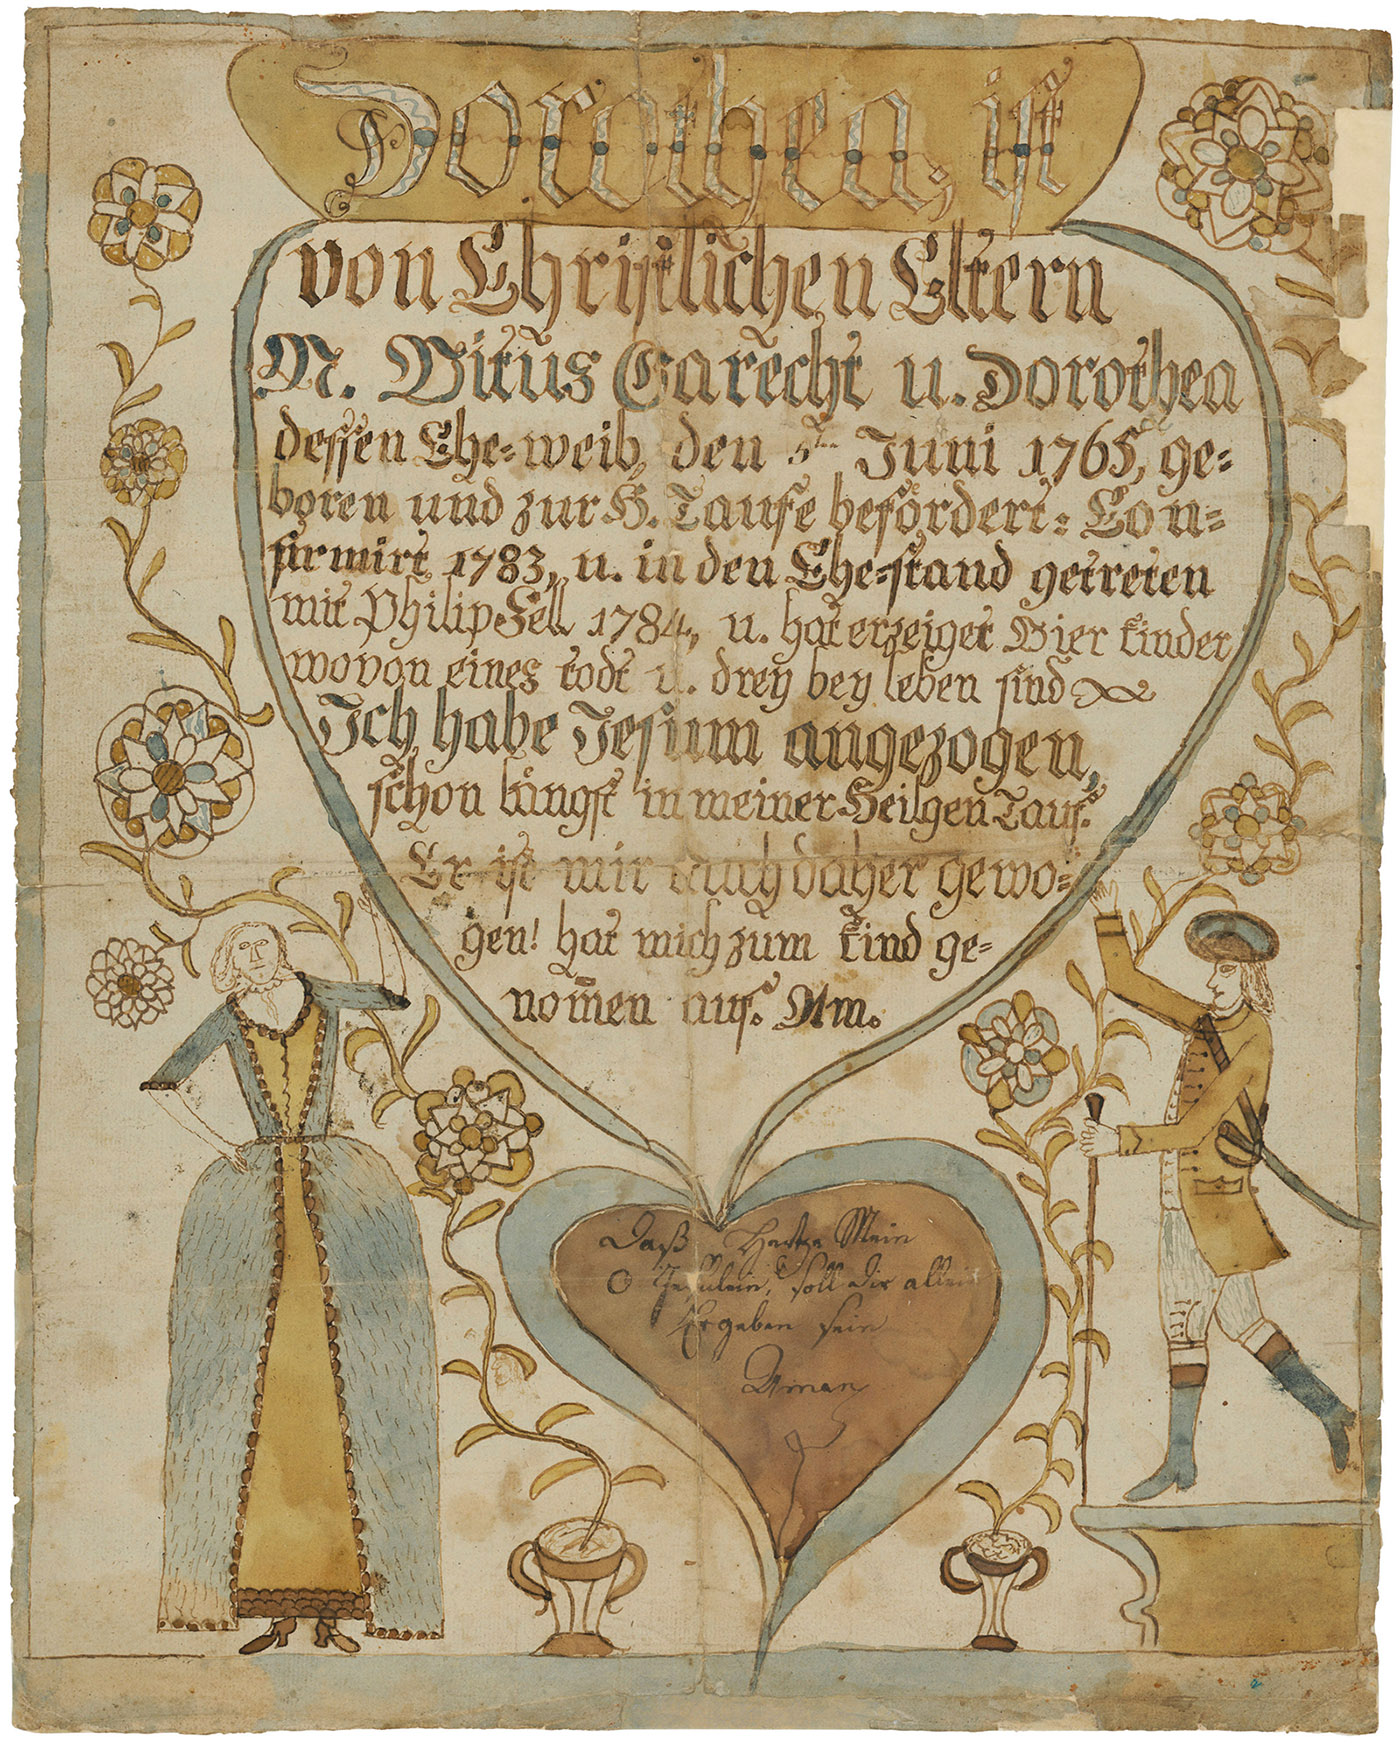 Dorothea, ist
von Christlichen Eltern
M. Vitus Garecht u. Dorothea
dessen Ehe=weib, den 5ten Juni 1765, ge=
boren und zur H. Taufe befördert: Con=
firmirt 1783, u. in den Ehe=stand getreten
mit Philip Fell 1784, u. hat erzeiget Vier kinder
wovon eines todt u. drey bey leben sind
Ich habe Jesum angezogen,
schon längst in meiner Heilgen Tauf.
Er ist mir auch daher gewo=
gen! hat mich zum kind ge=
nom̄en auf. Am.
Daß Hertze Mein
O Jesulein, soll dir allein
Ergeben sein
Amen